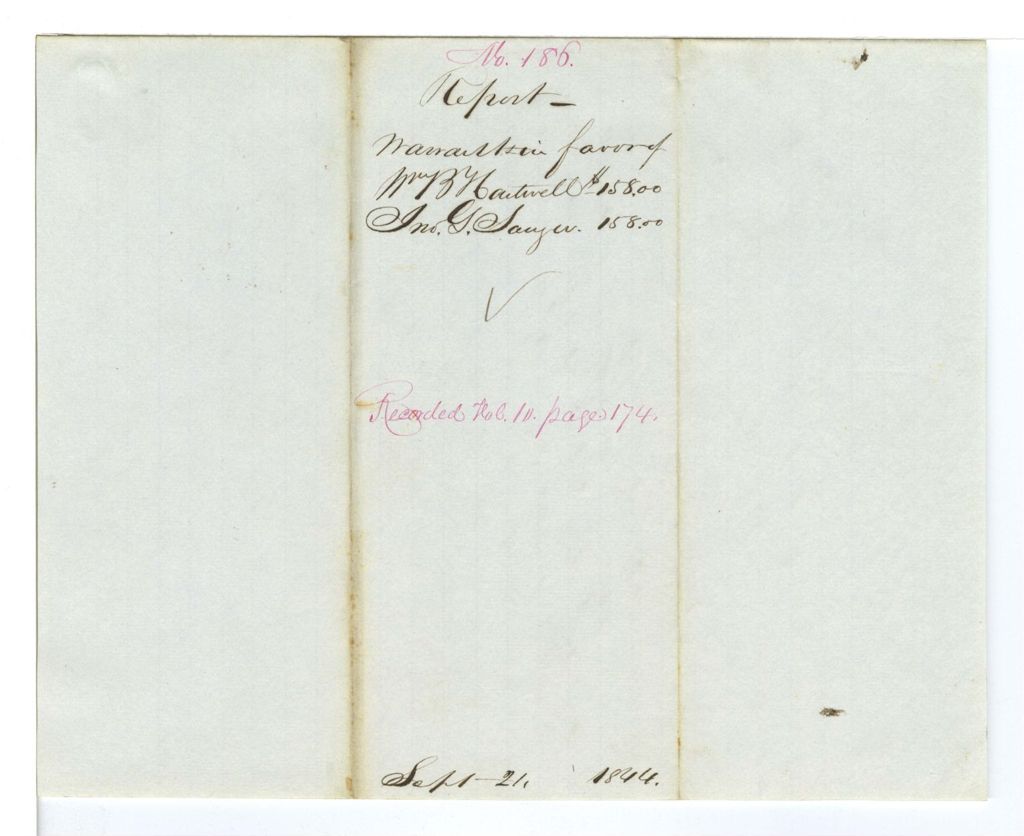 No. 186.
Report —
Warrants in favor of
Wm B Hartwell $158.00
Jno. G. Sawyer. 158.00
Recorded Vol. 10. page 174.
Sept 21, 1844.